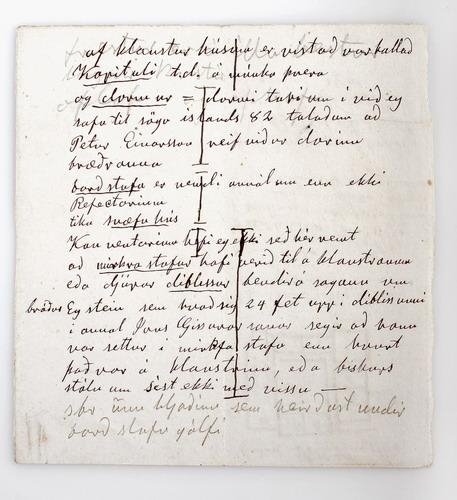 af klaustur húsum er víst að var kallað
Kapituli t.d. á munka þvera
og dormur = dormitorium í við ey
safn til sögu islands 82 taladum að
Petur Einarsson reif niður dorium
bræðranna
bord stofa er nefnd í annálum enn ekki
Refectorium
líka svæfu hús
Kon ventorium hefi eg ekki seð hér nemt
að mirkva stofur hafi verið til á klaustrunum
eða djupar diblissur bendir á sagann um
bróður Eystein sem kvað sig 24 fet upp í diblissunni
í annal Jons Gissurar sonar segir að hann
var settur í mirkva stofu enn hvort
það var á klaustrinu, eða biskups
stólnum sést ekki með vissu —
sbr önnu hljodinu sem heirdust undir
bord stofu gólfi